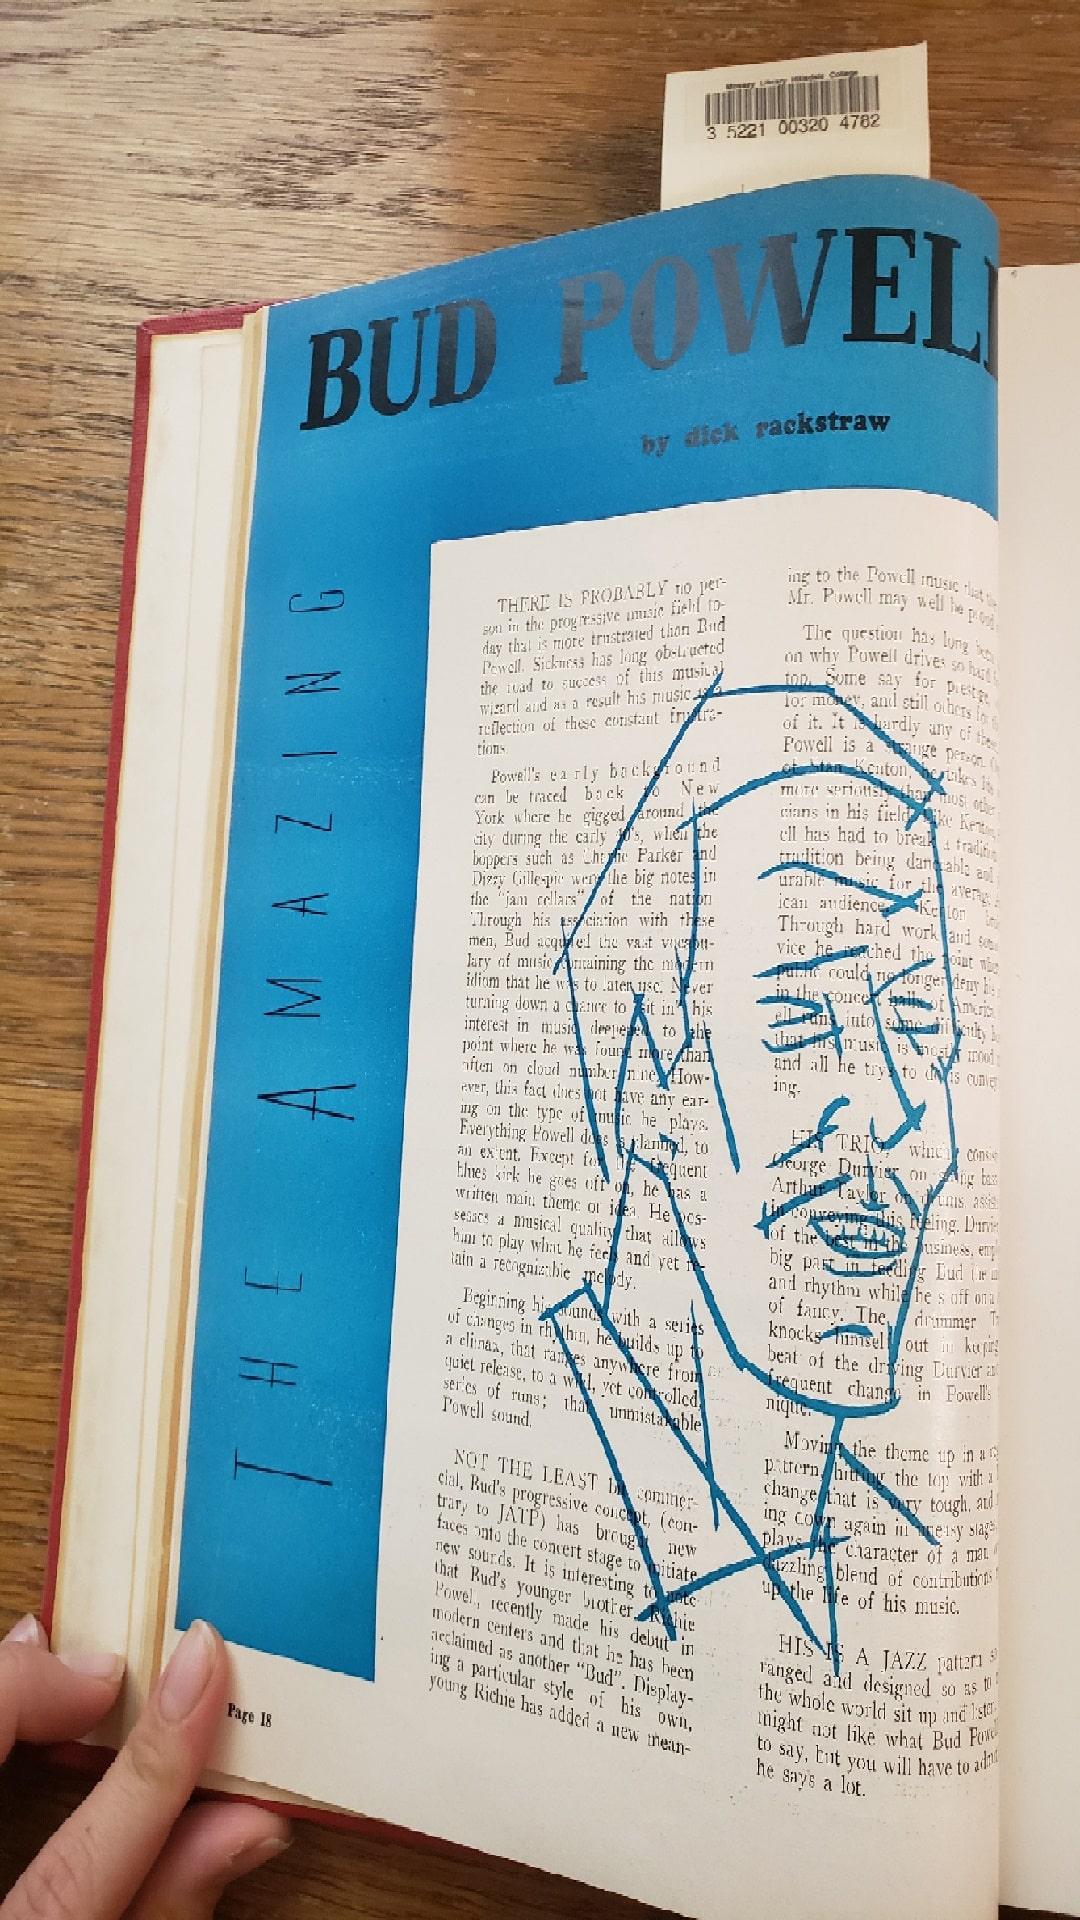 Mossey Library Hillsdale College
3 5221 00320 4782
THE AMAZING
BUD POWELL
by dick rackstraw
THERE IS PROBABLY no per-
son in the progressive music field to-
day that is more frustrated than Bud
Powell. Sickness has long obstructed
the road to success of this musical
wizard and as a result his music is a
reflection of these constant frustra-
tions.
Powell's early background
can be traced back to New
York where he gigged around the
city during the early 40's, when the
boppers such as Charlie Parker and
Dizzy Gillespie were the big notes in
the "jam cellars" of the nation.
Through his association with these
men, Bud acquired the vast vocabu-
lary of music containing the modern
idiom that he was to later use. Never
turning down a chance to "sit in" his
interest in music deepened to the
point where he was found more than
often on cloud number nine. How-
ever, this fact does not have any ear-
ing on the type of music he plays.
Everything Powell does is planned, to
an extent. Except for the frequent
blues kick he goes off on, he has a
written main theme or idea. He pos-
sesses a musical quality that allows
him to play what he feels and yet re-
tain a recognizable melody.
Beginning his sounds with a series
of changes in rhythm, he builds up to
a climax, that ranges anywhere from
quiet release, to a wild, yet controlled,
series of runs; that unmistakable
Powell sound.
NOT THE LEAST bit commer-
cial, Bud's progressive concept, (con-
trary to JATP) has brought new
faces onto the concert stage to initiate
new sounds. It is interesting to note
that Bud's younger brother, Richie
Powel, recently made his debut in
modern centers and that he has been
acclaimed as another "Bud". Display-
ing a particular style of his own,
young Richie has added a new mean-
ing to the Powell music that
Mr. Powell may well be proud
The question has long been
on why Powell drives so hard
top. Some say for prestige,
for money, and still others for
of it. It is hardly any of these.
Powell is a strange person.
of Stan Kenton, he takes his
more seriously than most other
cians in his field. Like Kenton,
ell has had to break a tradition
tradition being danceable and
urable music for the average
ican audience. Kenton
Through hard work and some
vice he reached the point where
public could no longer deny his
in the concert halls of America.
ell runs into some difficulty
that his music is mostly mood
and all he trys to do is convey
ing.
HIS TRIO, which consists
George Durvier on string bass
Arthur Taylor on drums, assist
in conveying this feeling. Durvier
of the best in the business, emp
big part in feeding Bud the
and rhythm while he s off on a
of fancy. The drummer
knocks himself out in keeping
beat of the driving Durvier and
frequent change in Powell's
nique.
Moving the theme up in a
pattern, hitting the top with a
change that is very tough, and
ing down again in uneasy stages
plays the character of a man
dazzling blend of contributions
up the life of his music.
HIS IS A JAZZ pattern so
ranged and designed so as to
the whole world sit up and listen
might not like what Bud Powell
to say, but you will have to admit
he says a lot.
Page 18